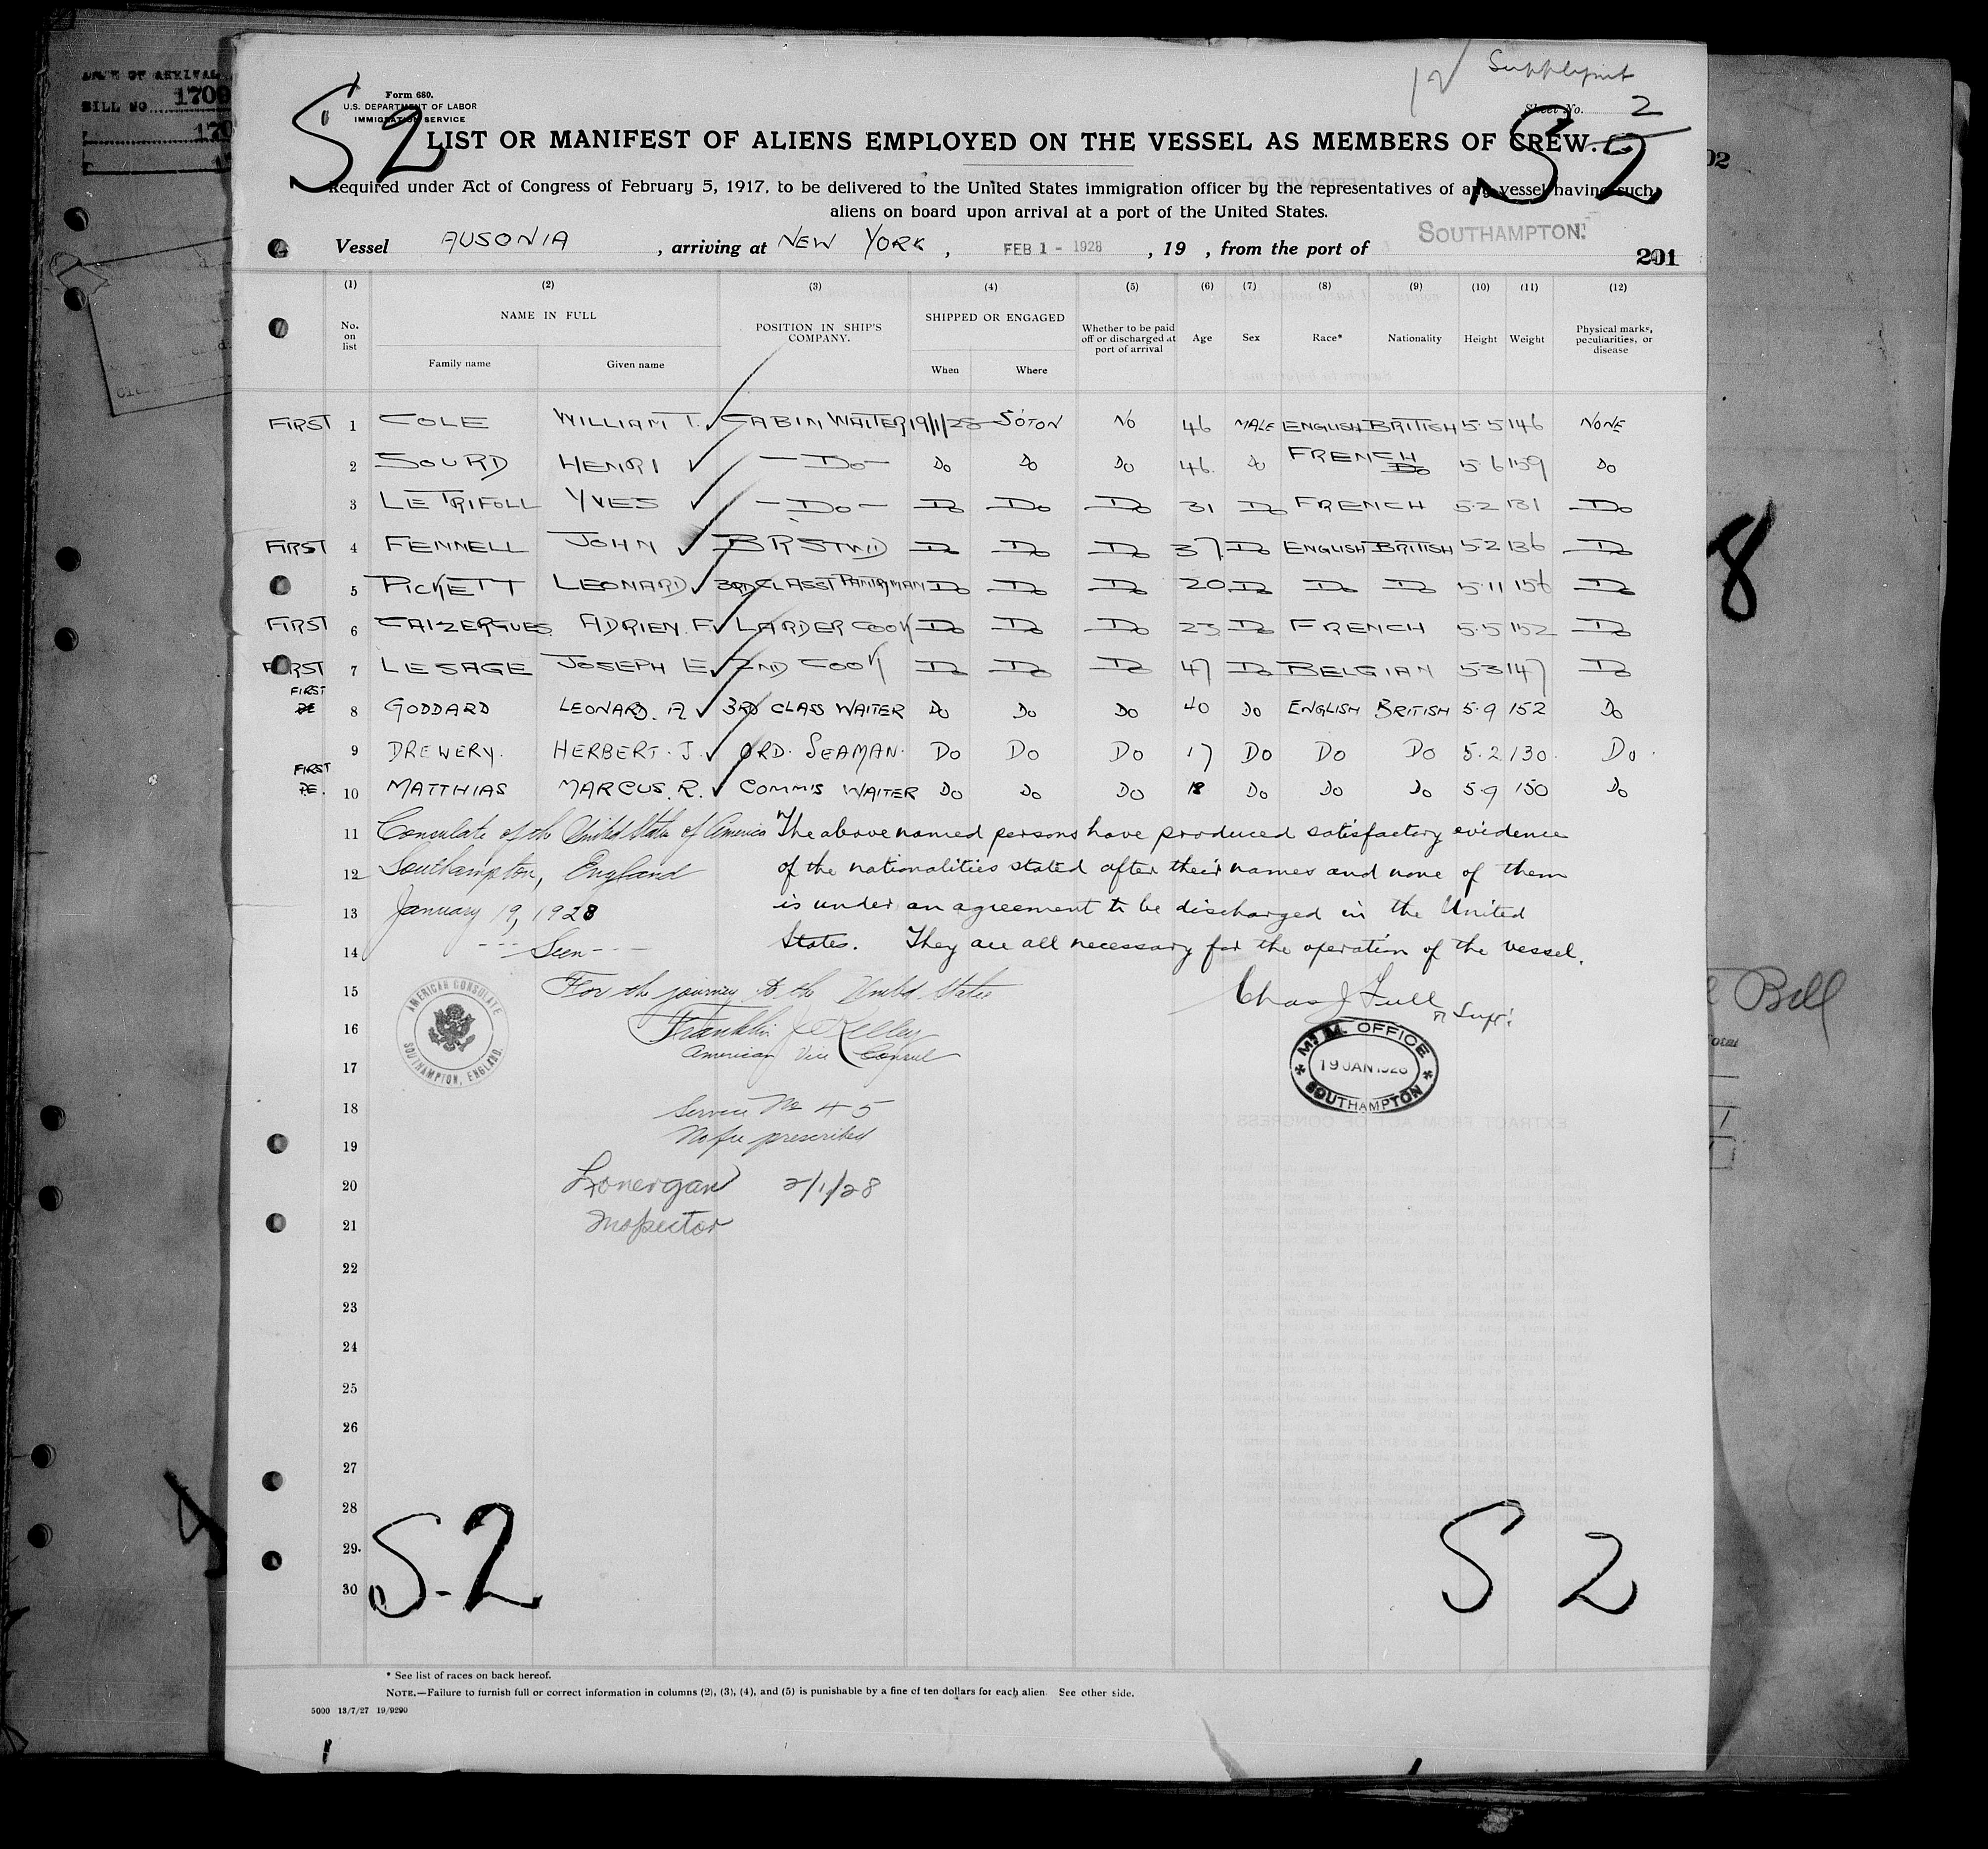 DATE OF ARRIVAL
BILL NO. 1700
170
Supplement
12
Form 680.
U.S. DEPARTMENT OF LABOR
IMMIGRATION SERVICE
Sheet No. 2
S 2
S 2
LIST OR MANIFEST OF ALIENS EMPLOYED ON THE VESSEL AS MEMBERS OF CREW.
Required under Act of Congress of February 5, 1917, to be delivered to the United States immigration officer by the representatives of any vessel having such
aliens on board upon arrival at a port of the United States.
Vessel AUSONIA, arriving at NEW YORK, FEB 1 - 1928, 19 , from the port of SOUTHAMPTON.
201
(1) (2) (3) (4) (5) (6) (7) (8) (9) (10) (11) (12)
No. on list NAME IN FULL POSITION IN SHIP'S COMPANY. SHIPPED OR ENGAGED Whether to be paid off or discharged at port of arrival Age Sex Race* Nationality Height Weight Physical marks, peculiarities, or disease
Family name Given name When Where
FIRST 1 COLE WILLIAM T. CABIN WAITER 19/1/28 SOTON NO 46 MALE ENGLISH BRITISH 5.5 146 NONE
2 SOURD HENRI -DO- DO DO DO 46. DO FRENCH DO 5.6 159 DO
3 LE TRIFOLL YVES -DO- DO DO DO 31 DO FRENCH 5.2 131 DO
FIRST 4 FENNELL JOHN BR STWD DO DO DO 37 DO ENGLISH BRITISH 5.2 136 DO
5 PICKETT LEONARD 3RD CLASST PANTRYMAN DO DO DO 20 DO DO DO 5.11 156 DO
FIRST 6 CAIZERGUES ADRIEN. F. LARDER COOK DO DO DO 23 DO FRENCH 5.5 152 DO
FIRST 7 LESAGE JOSEPH E. 2ND COOK DO DO DO 47 DO BELGIAN 5.3 147 DO
FIRST
8 GODDARD LEONARD. A. 3RD CLASS WAITER DO DO DO 40 DO ENGLISH BRITISH 5.9 152 DO
9 DREWERY. HERBERT. J. ORD. SEAMAN. DO DO DO 17 DO DO DO 5.2 130. DO.
FIRST
RE. 10 MATTHIAS MARCUS. R. COMMIS WAITER DO DO DO 18 DO DO DO 5.9 150 DO
11 Consulate of the United States of America "The above named persons have produced satisfactory evidence
12 Southampton, England of the nationalities stated after their names and none of them
13 January 19, 1928 is under an agreement to be discharged in the United
14 --- Seen --- States. They are all necessary for the operation of the vessel.
15 For the journey to the United States Chas J Full
Supt.
16 Franklin Kelley
American Vice Consul
17
AMERICAN CONSULATE
SOUTHAMPTON, ENGLAND.
M. M. OFFICE
19 JAN 1928
SOUTHAMPTON
18 Service No 45
19 No fee prescribed
20 Lonergan 2/1/28
21 Inspector
22
23
24
25
26
27
28
29
30
S-2
S 2
* See list of races on back hereof.
NOTE.—Failure to furnish full or correct information in columns (2), (3), (4), and (5) is punishable by a fine of ten dollars for each alien. See other side.
5000 13/7/27 19/9290
02
8
Bell